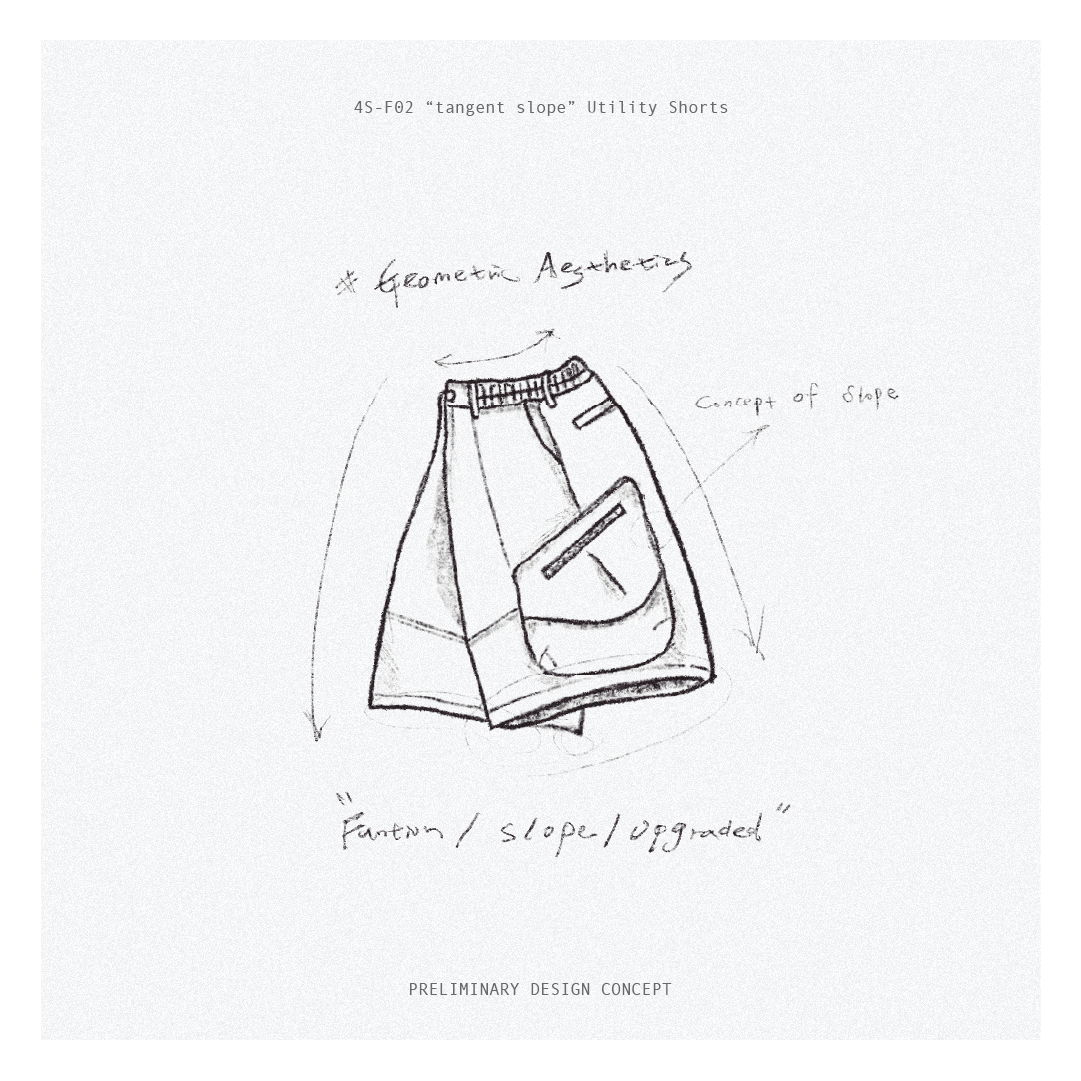 4S-F02 “tangent slope” Utility Shorts
* Geometric Aesthetics
Concept of Slope
"Funtion / slope / upgraded"
PRELIMINARY DESIGN CONCEPT